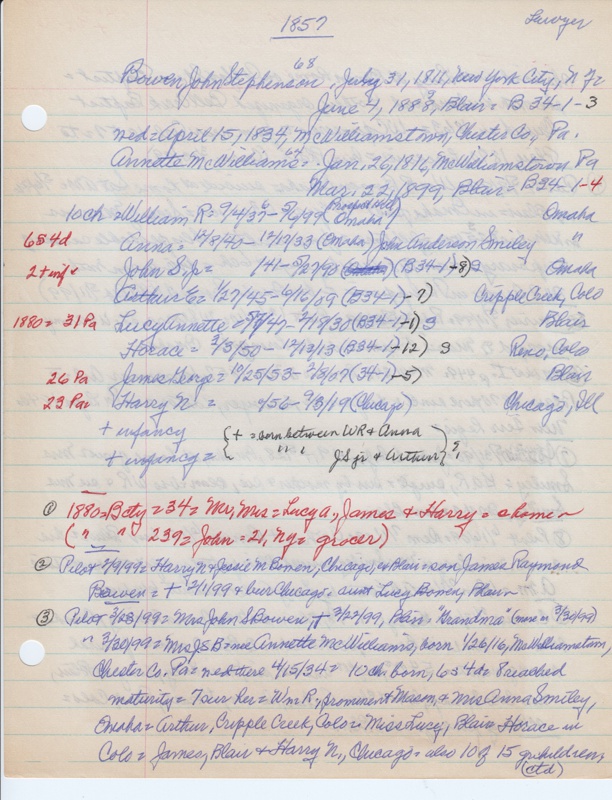 1857
Lawyer
68
Bowen, John Stephenson, July 31, 1811, New York City, N Y =
June 4, 1888, Blair = B 34-1-3
med = April 15, 1834, McWilliamstown, Chester Co, Pa.
Annette McWilliams = Jan, 26, 1816, McWilliamstown Pa
Mar, 22, 1899, Blair = B34-1-4
10 ch = William, R = 9/4/37 - 5/6/99 (Prospect Hill Omaha) Omaha
6s 4d Anna = 12/8/40 - 12/17/33 (Omaha) John Anderson Smiley "
2 + inf John S, Jr = /41 - 5/27/90 (B34-1-8) Omaha
Arthur = 1/27/45 - 6/16/09 (B34-1-7) Cripple Creek, Colo
1880 = 31 Pa Lucy Annette = /47 - 2/19/30 (B34-1-1) 9 Blair
Horace = 3/3/50 - 12/13/13 (B34-1-12) 9 Reno, Colo
26 Pa James George = 10/25/53 - 2/8/07 (34-1-5) Blair
23 Pa Harry N = /56 - 9/3/19 (Chicago) Chicago, Ill
+ infancy { + = born between WR & Anna
+ infancy = " " " JS jr & Arthur }
① 1880 = Bcty = 34 = Mr, Mrs = Lucy A, James & Harry = @ home
( " " 239 = John = 21, Ny = grocer)
② Pilot 2/9/99 = Harry N & Jessie M Bowen, Chicago, exBlair = son James Raymond
Bowen = + 2/1/99 & bur Chicago = aunt Lucy Bowen, Blair
③ Pilot 3/23/99 = Mrs John S Bowen, + 3/22/99, Blair = "Grandma" (more in 3/30/99)
" 3/30/99 = Mrs JS B = nee Annette McWilliams, born 1/26/16, McWilliamstown,
Chester Co. Pa = med there 4/15/34 = 10 ch born, 6s 4d = 8 reached
maturity = 7 sur her = Wm R, prominent Mason, & Mrs Anna Smiley,
Omaha = Arthur, Cripple Creek, Colo = Miss Lucy, Blair = Horace in
Colo = James, Blair & Harry N., Chicago = also 10 of 15 grchildren
(ctd)